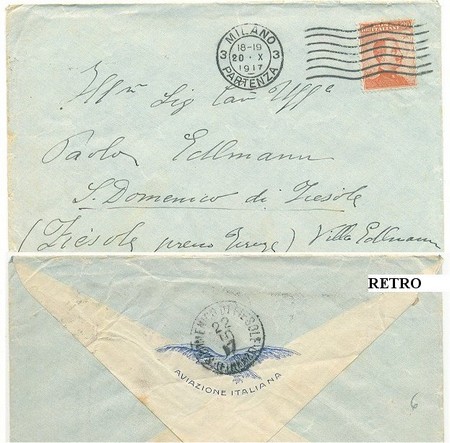 MILANO
3 3
18-19
20·X
1917
PARTENZA
Ill^mo Sig Cav Uff^e
Paolo Edlmann
S. Domenico di Fiesole
(Fiesole presso Firenze) Villa Edlmann
RETRO
DOMENICO DI FIESOLE
22
AVIAZIONE ITALIANA
6